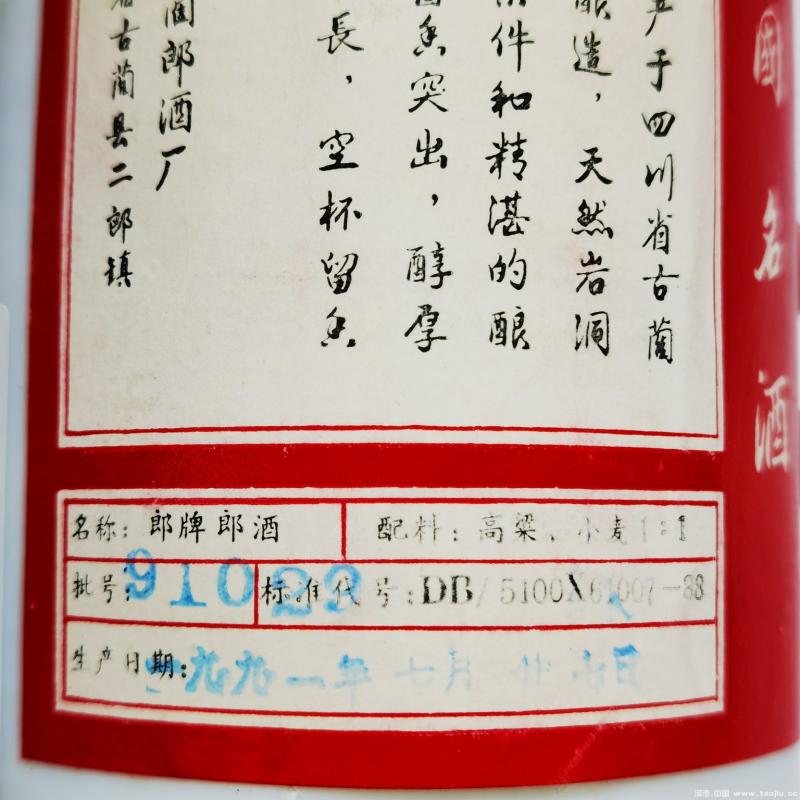 國名酒
产于四川省古蔺
酿造，天然岩洞
件和精湛的酿
香突出，醇厚
長，空杯留香
郎酒厂
省古蔺县二郎镇
名称：郎牌郎酒
配料：高粱、小麦1:1
批号：910
标准代号：DB/5100X61007-88
生产日期：一九九一年七月
www.taojiu.cc